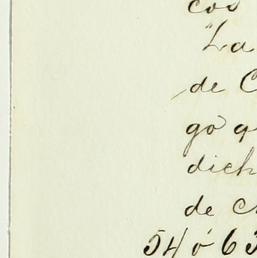 cos
La
de C
go q
dich
de
54 ó 63